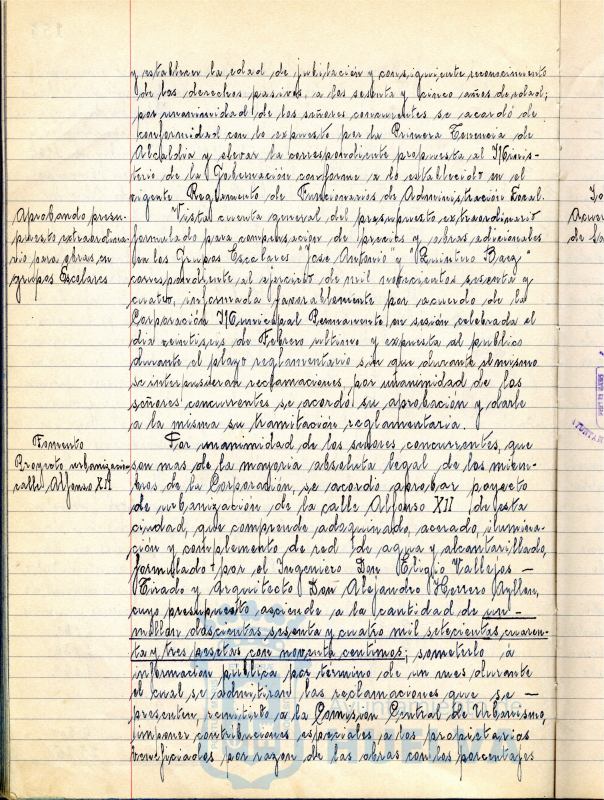 y establecer la edad de jubilación y consiguiente reconocimiento
de los derechos pasivos, a los sesenta y cinco años de edad;
por unanimidad de los señores concurrentes se acordó de
conformidad con lo expuesto por la Primera Tenencia de
Alcaldia y elevar la correspondiente propuesta al Minis-
terio de la Gobernación conforme a lo establecido en el
vigente Reglamento de Funcionarios de Administración Local.
Aprobando presu-
puesto extraordina-
rio para obras en
grupos Escolares
Vista cuenta general del presupuesto extraordinario
formulado para compensacion de precios y obras adicionales
en los Grupos Escolares "José Antonio" y "Quintero Baez"
correspondiente al ejercicio de mil novecientos sesenta y
cuatro, informada favorablemente por acuerdo de la
Corporación Municipal Permanente en sesión celebrada el
dia veintiseis de Febrero ultimo y expuesta al publico
durante el plazo reglamentario sin que durante el mismo
se interpusieran reclamaciones, por unanimidad de los
señores concurrentes se acordó su aprobación y darle
a la misma su tramitación reglamentaria.
Fomento
Proyecto urbanización
calle Alfonso XII
Por unanimidad de los señores concurrentes, que
son mas de la mayoria absoluta legal de los miem-
bros de la Corporación, se acordó aprobar proyecto
de urbanización de la calle Alfonso XII de esta
ciudad, que comprende adoquinado, acerado, ilumina-
ción y complemento de red de agua y alcantarillado,
formulado por el Ingeniero Don Eligio Vallejos
Tirado y Arquitecto Don Alejandro Herrero Ayllon,
cuyo presupuesto asciende a la cantidad de un
millon doscientas sesenta y cuatro mil setecientas cuaren-
ta y tres pesetas con noventa centimos; someterlo a
informacion pública por término de un mes durante
el cual se admitiran las reclamaciones que se
presenten, remitirlo a la Comision Central de Urbanismo,
imponer contribuciones especiales a los propietarios
beneficiados por razon de las obras con los porcentajes
Acuer
de la
Ayuntamiento de
HUELVA